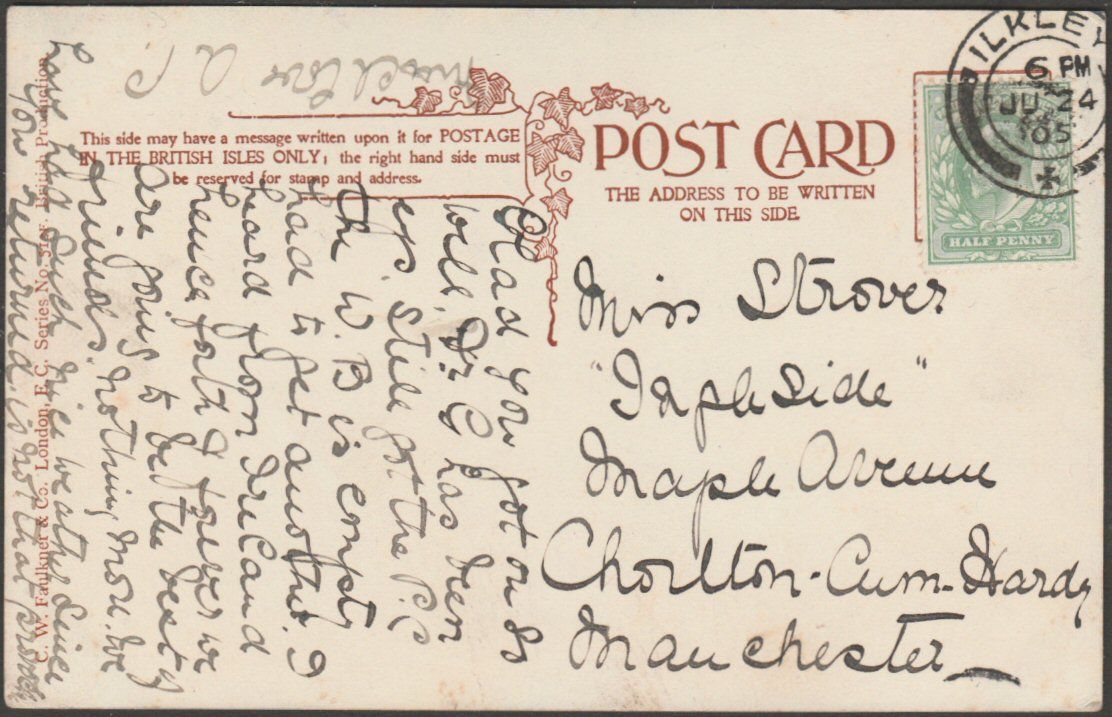 POST CARD
THE ADDRESS TO BE WRITTEN
ON THIS SIDE.
This side may have a message written upon it for POSTAGE
IN THE BRITISH ISLES ONLY; the right hand side must
be reserved for stamp and address.
ILKLEY
6 PM
JU 24
05
HALF PENNY
Miss Strover
"Ingleside"
Maple Avenue
Chorlton-Cum-Hardy
Manchester
Glad you got on so
well. Dr G has been
still got the P.C
The W.B is empty
had to get another. I
heard from Ireland
hence forth & forever we
are going to be the best of
friends. Nothing more. We
have had such nice weather since
you returned is not that
C. W. Faulkner & Co. London, E.C. Series No. British Production.